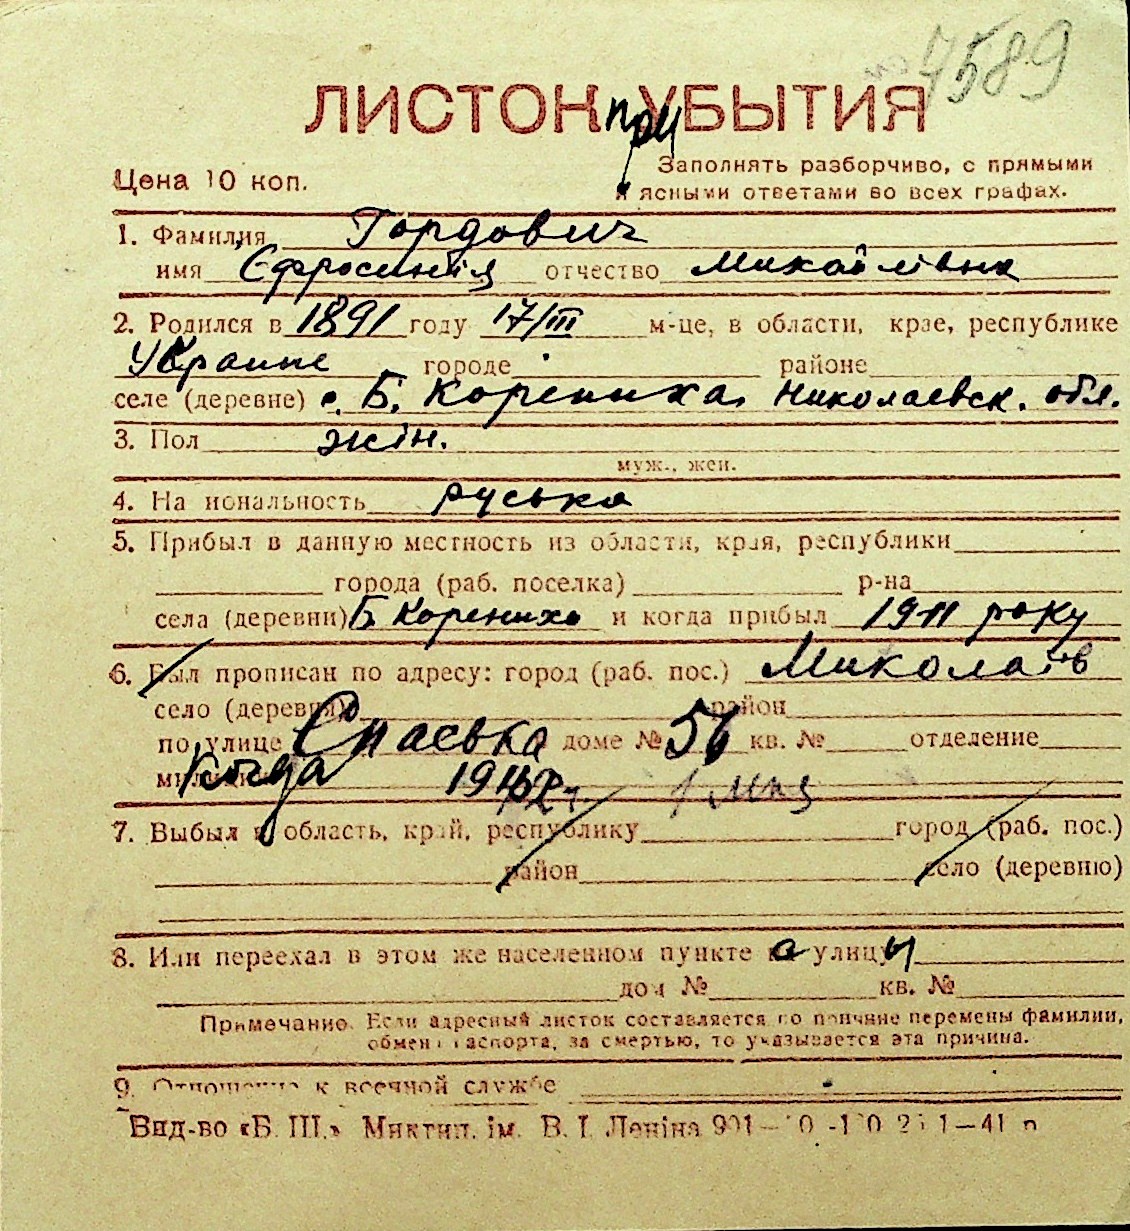 № 7589
ЛИСТОК при УБЫТИЯ
Заполнять разборчиво, с прямыми
Цена 10 коп.
и ясными ответами во всех графах.
1. Фамилия Гордович
имя Єфросинія отчество Михайлівна
2. Родился в 1891 году 17/III м-це, в области, крае, республике
Украине городе районе
селе (деревне) с. Б. Корениха Николаевск. обл.
3. Пол жін.
муж., жен.
4. На иональность руська
5. Прибыл в данную местность из области, края, республики
города (раб. поселка) р-на
села (деревни) Б. Корениха и когда прибыл 1911 року
6. Был прописан по адресу: город (раб. пос.) Миколаїв
село (деревня) район
по улице Спаська доме № 56 кв. № отделение
милиции Когда 1942 г.
7. Выбыл в область, край, республику город (раб. пос.)
район село (деревню)
8. Или переехал в этом же населенном пункте на улицы
дом № кв. №
Примечание. Если адресный листок составляется по причине перемены фамилии,
обмен паспорта, за смертью, то указывается эта причина.
9. Отношение к военной службе
Вид-во «Б. Ш.» Миктип. ім. В. І. Леніна